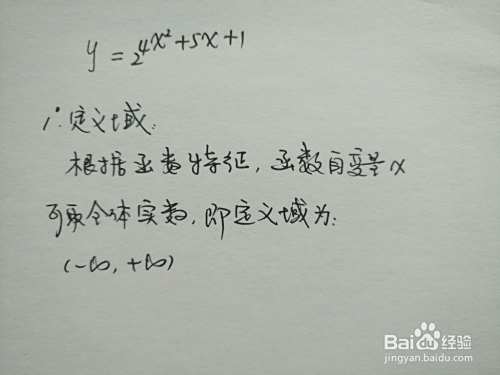 y = 2^{4x²+5x+1}
1°. 定义域:
根据函数特征, 函数自变量x
可取全体实数, 即定义域为:
(-∞, +∞)
Baidu经验
jingyan.baidu.com